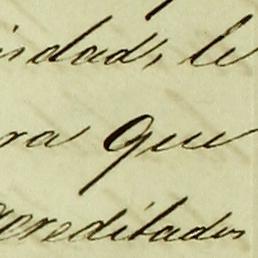 isdad, le
ra que
acreditados